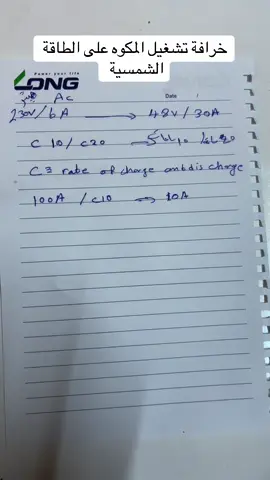 خرافة تشغيل المكوه على الطاقة
الشمسية
Power your life
LONG
Date /
AC
230V/6A → 48V/30A
C 10/ C20 → 10
C3 rate of charge and discharge
100A /C10 → 10A